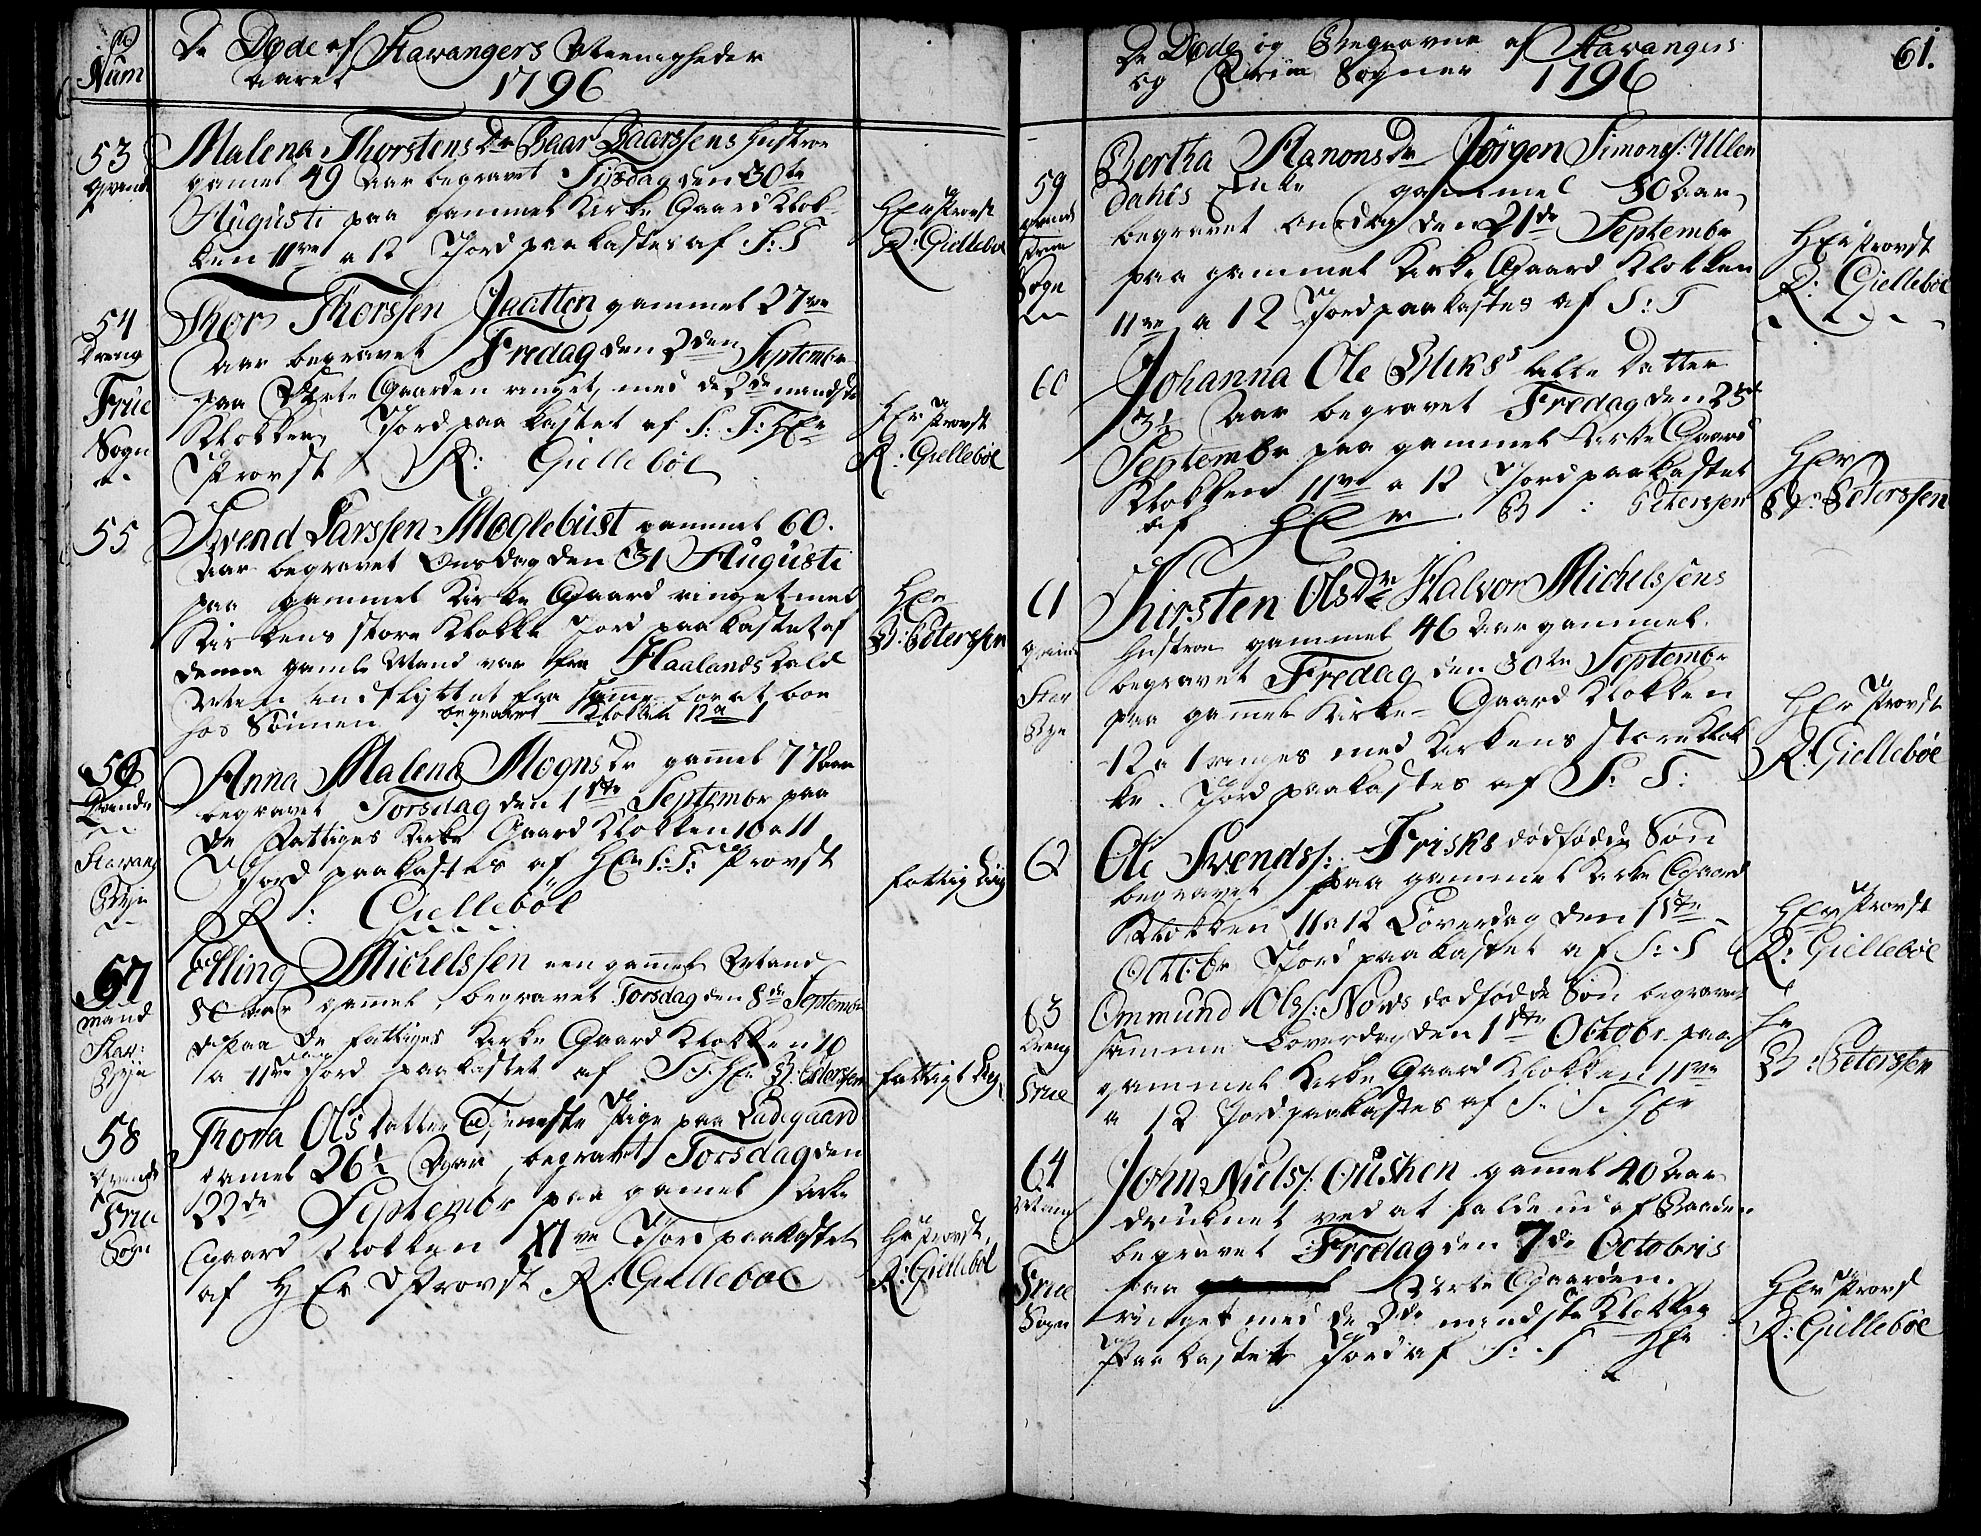 Num
De Døde af Stavangers Meenigheder
Aaret 1796
53
Qvinde
Malena Thorstens Dr Baar Baarssens Hustroe
gamel 49 Aar begravet Tiisdag den 30te
Augusti paa gammel Kirke Gaard Klok-
ken 11ve a 12 Jord paakastes af S: T
Her Provst
R: Giellebøe
54
Dreng
Frue
Sogn
Thor Thorssen Jaatten gammel 27ve
Aar begravet Fredag den 2den Septembr
paa Kirke Gaarden ringet med de 2de mindste
Klokker Jord paa kastet af S: T: Her
Provst R: Giellebøe
Her Provst
R: Giellebøe
55
Svend Larssen Møglebust gammel 60.
Aar begravet Onsdag den 31 Augusti
paa gammel Kirke Gaard ringet med
Kirkens store Klokke Jord paa kastet af
denne gamle Mand var fra Haalands Kald
Men indflyttet fra samme for at boe
hos Sønnen begravet Klokken 12 a 1
Her
B: Peterssen
56
Qvinde
Stavang
Bye
Anna Malena Mogns Dr gamel 77 Aar
begravet Torsdag den 1ste Septembr paa
De Fattiges Kirke Gaard Klokken 10 a 11
Jord paakastes af Her S: T: Provst
R: Giellebøe
fattig Liig
57
Mand
Stav:
Bye
Elling Michelssen een gamel Mand
80 Aar gamel, begravet Torsdag den 8de Septembr
paa De fattiges Kirke Gaard Klokken 10
a 11ve Jord paakastet af S. T. Her B: Peterssen
fattigt Liig
58
Qvinde
Frue
Sogn
Thora Ols Datter Tjeneste Pige paa Ladegaard
gamel 26½ Aar begravet Torsdag den
22de Septembr paa gamel Kirke
Gaard Klokken XIve Jord paakastet
af HEr Provst R: Giellebøe
Her Provst,
R: Giellebøe
De Døde og Begravne af Stavangers
og Frue Sogner 1796
61.
59
Qvinde
Frue
Sogn
Bertha Hanons Dr Jørgen Simons: Ullen
Dahls Enke gammel 80 Aar
begravet Onsdag den 21de Septembr
paa gammel Kirke Gaard Klokken
11ve a 12 Jord paakastes af S: T
HEr Provst
R: Giellebøe
60
Johanna Ole Bliks lille Datter
3½ Aar begravet Fredag den 23de
Septembr paa gammel Kirke Gaard
Klokken 11ve a 12 Jord paakastet
af HEr B: Peterssen
Her
B: Peterssen
61
Qvinde
Stav
Bye
Kirsten Ols Dr Halvor Michelssens
Hustroe gammel 46 Aar gammel.
begravet Fredag den 30te Septembr
paa gamel Kirke-Gaard Klokken
12 a 1 ringes med Kirkens store Klok
ke. Jord paakastes af S: T:
HEr Provst
R: Giellebøe
62
Ole Svends: Frisks dødfødde Søn
begravet paa gammel Kirke Gaard
Klokken 11 a 12 Løverdag den 1ste
Octobr Jord paakastet af S: T
HEr Provst
R: Giellebøe
63
Dreng
Frue
Ommund Ols: Nords dødfødde Søn begravet
samme Løverdag den 1ste Octobr. paa
gammel Kirke Gaard Klokken 11ve
a 12 Jord paakastes af S. T. HEr
Hr
B: Peterssen
64
Mand
Frue
Sogn
John Niels: Ousken gamel 40 Aar
druknet ved at falde ud af Baaden
begravet Fredag den 7de Octobris
paa Kirke Gaarden.
ringet med de 2de mindste Klokker
Paakastet Jord af S: T HEr
HEr Provst
R: Giellebøe